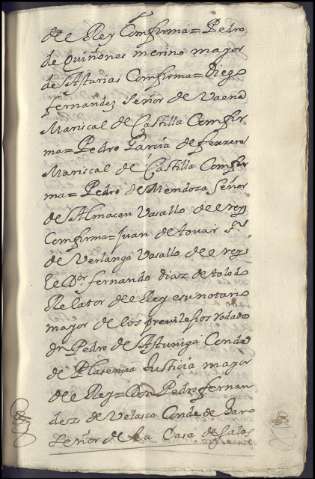 del Rey Confirma = Pedro
de quiñones merino mayor
de Asturias Confirma = Diego
fernandez Señor de Vaena
Mariscal de Castilla Confir
ma = Pedro Garcia de ferrera
Mariscal de Castilla Confir
ma = Pedro de Mendoza Señor
de Almacan Vasallo del rey
Confirma = Juan de touar Sr
de Verlanga Vasallo del rey
el Dor fernando diaz de toledo
Relator del Rey e su notario
mayor de los previlesios Rodados
Dn Pedro de Astuniga Conde
de Plasencia Justicia mayor
del Rey = Don Pedro fernan
dez de Velasco Conde de Haro
Señor de la Casa de Salas